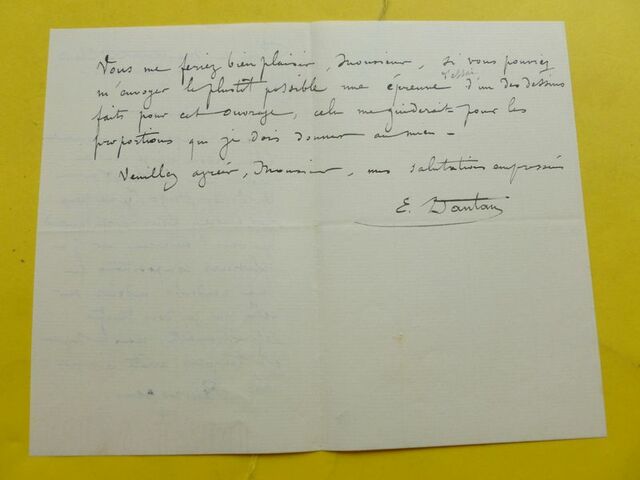 Vous me feriez bien plaisir, Monsieur, si vous pouviez
m'envoyer le plustôt possible une épreuve d'essai d'un des dessins
faits pour cet ouvrage, cela me guiderait pour les
proportions que je dois donner au mien –
Veuillez agréer, Monsieur, mes salutations empressées
E. Dantan